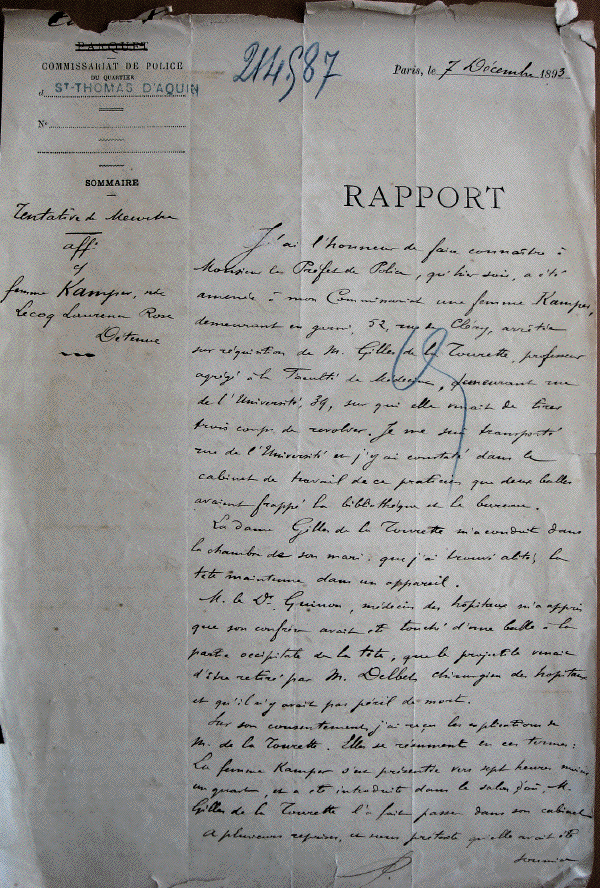 PARQUET
COMMISSARIAT DE POLICE
DU QUARTIER
d ST-THOMAS D'AQUIN
No
SOMMAIRE
Tentative de Meurtre
affre
c/
femme Kamper, née
Lecoq Laurence Rose
Détenue
214,587
Paris, le 7 Décembre 1893
RAPPORT
J'ai l'honneur de faire connaître à
Monsieur le Préfet de Police, qu'hier soir, a été
amenée à mon Commissariat une femme Kamper,
demeurant en garni, 52, rue de Cléry, arrêtée
sur réquisition de M. Gilles de la Tourette, professeur
agrégé à la Faculté de Médecine, demeurant rue
de l'Université, 39, sur qui elle venait de tirer
trois coups de revolver. Je me suis transporté
rue de l'Université et j'y ai constaté dans le
cabinet de travail de ce praticien que deux balles
avaient frappé la bibliothèque et le bureau.
La dame Gilles de la Tourette m'a conduit dans
la chambre de son mari, que j'ai trouvé alité, la
tête maintenue dans un appareil.
M. le Dr Guinon, médecin des hôpitaux m'a appris
que son confrère avait été touché d'une balle à la
partie occipitale de la tête, que le projectile venait
d'être retiré par M. Delbet, chirurgien des hôpitaux
et qu'il n'y avait pas péril de mort.
Sur son consentement, j'ai reçu les explications de
M. de la Tourette. Elles se résument en ces termes:
La femme Kamper s'est présentée vers sept heures moins
un quart, et a été introduite dans le salon, d'où M.
Gilles de la Tourette l'a fait passer dans son cabinet
A plusieurs reprises, et sous prétexte qu'elle avait été
soumise